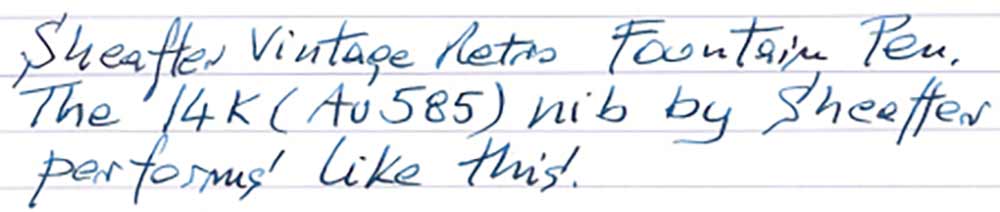 Sheaffer Vintage Retro Fountain Pen.
The 14K (Au585) nib by Sheaffer
performs like this.